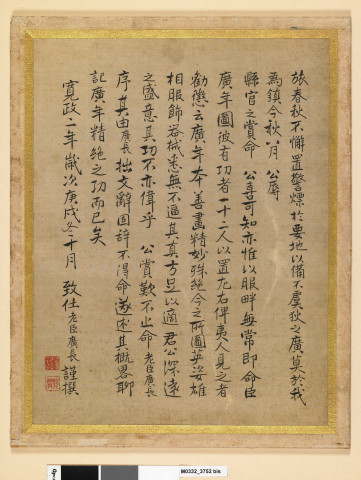 旅春秋不懈置警熛於要地以備不虞狄之廣莫於我
為鎮今秋八月 公辱
縣官之賞命 公尋可知亦惟以服畔無常即命臣
廣年圖彼有功者一十二人以置左右俾夷人見之者
勸懲云廣年本善畫精妙殊絶今之所圖英姿雄
相服飾器械悉無不逼其真方足以適君公深遠
之盛意其功不亦偉乎 公賞歎不止命老臣廣長
序其由廣長拙文辭固辞不得命遂述其概畧聊
記廣年精絶之功而已矣
寛政二年歳次庚戌冬十月 致仕老臣廣長謹撰
M0332_3752 bis